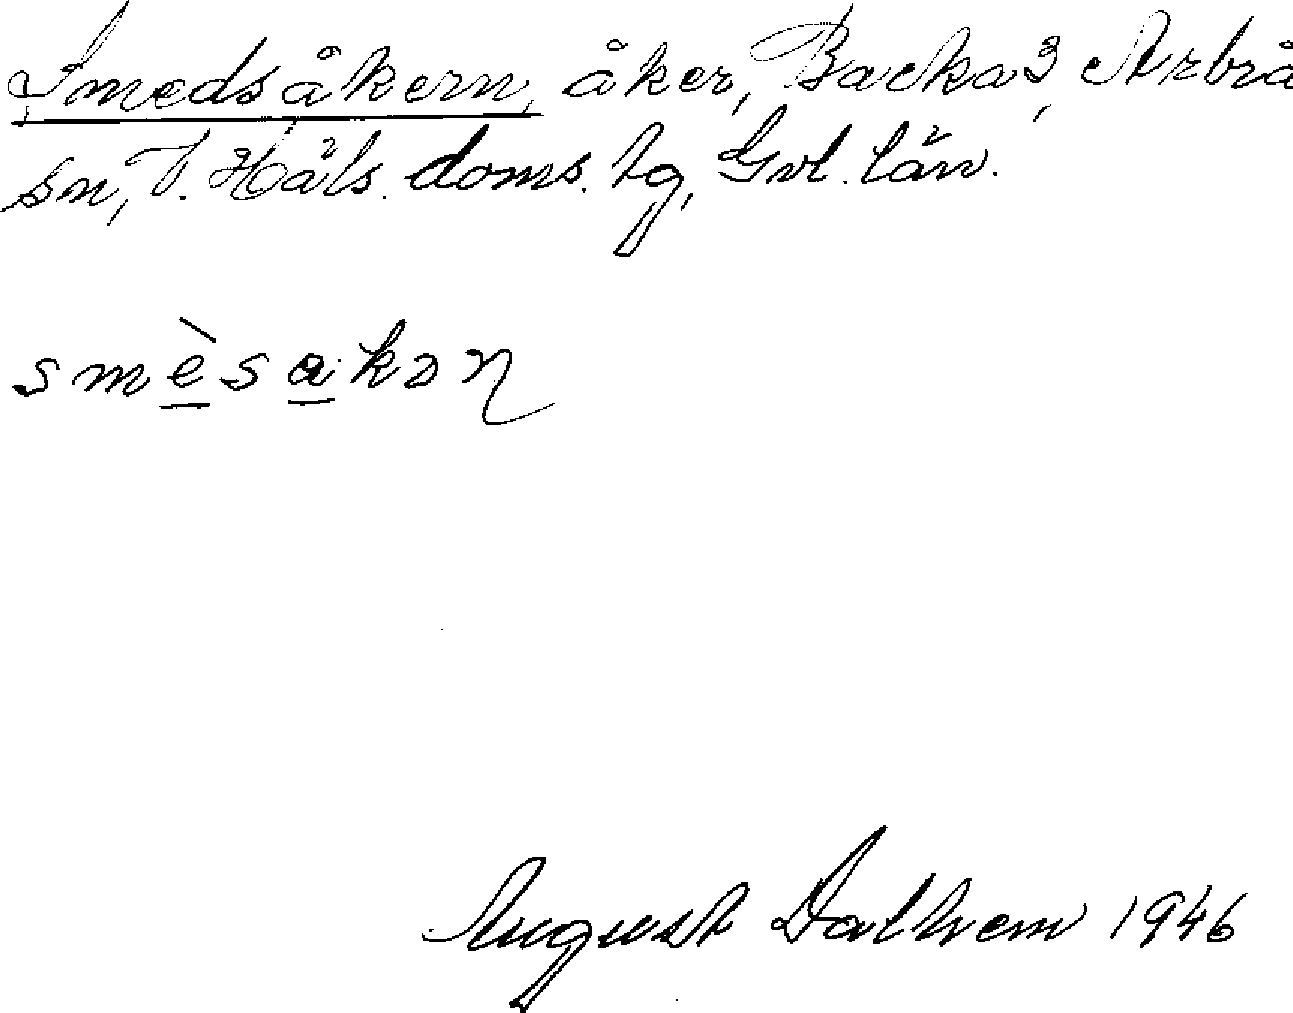 Smedsåkern, åker, Backa 3, Arbrå
sn, V. Häls. doms. tg, Gvl. län.
smèsakən
August Dalhem 1946